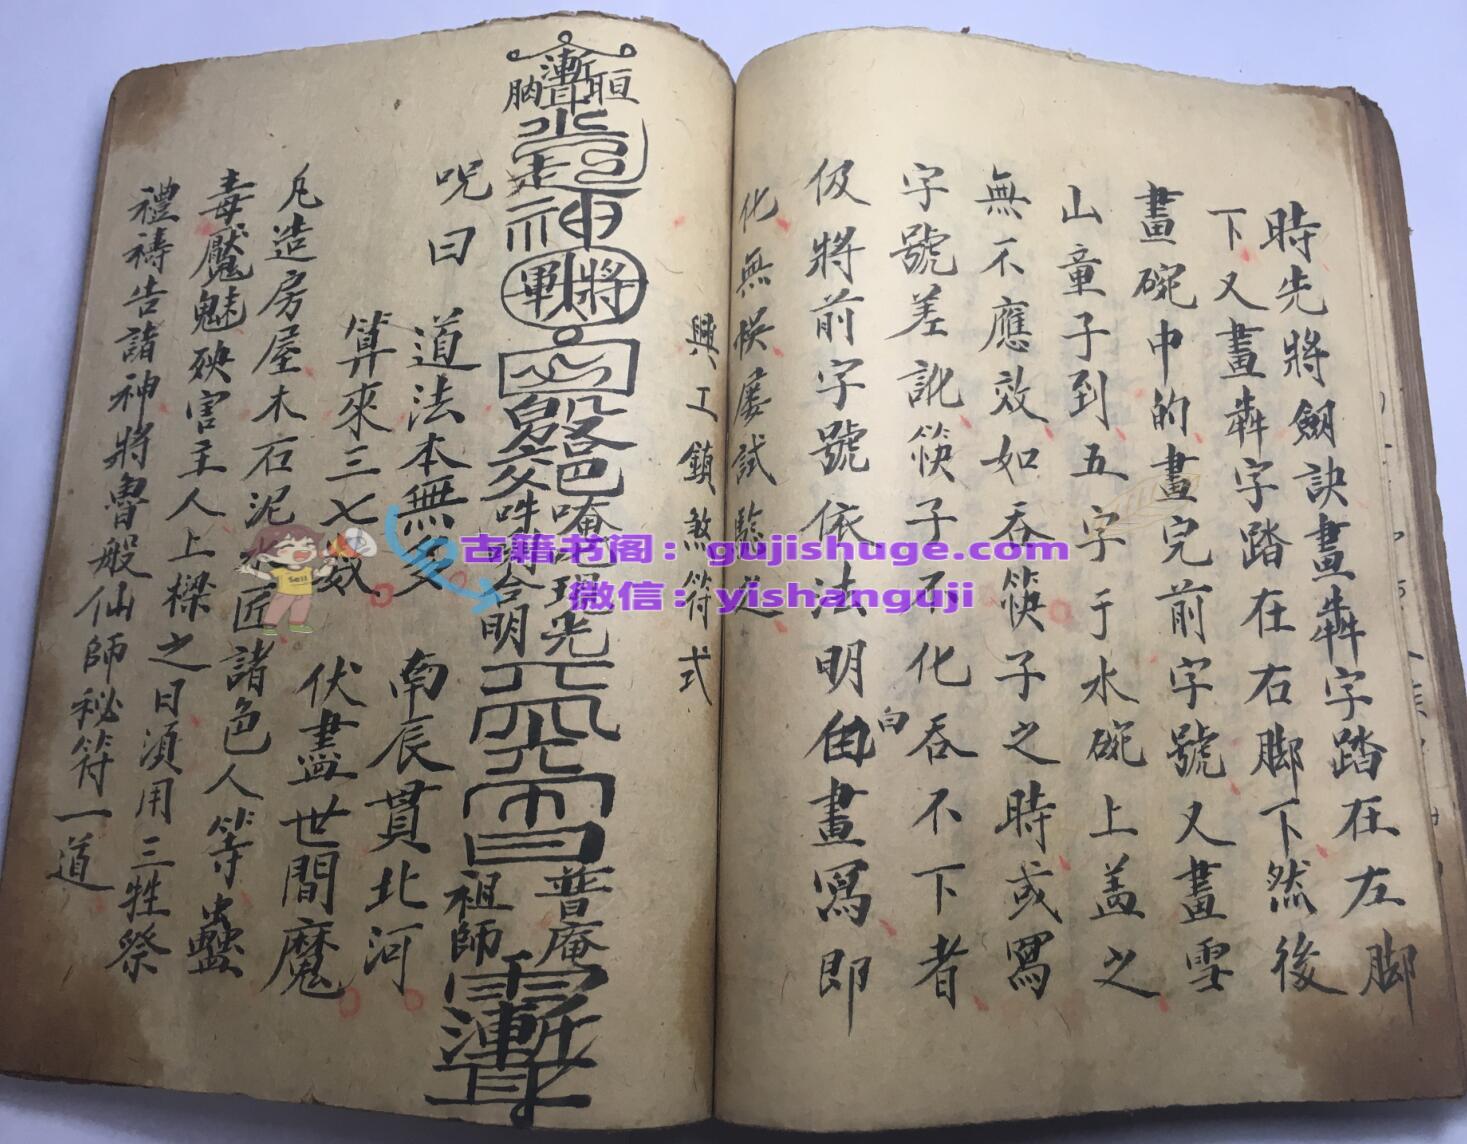 時先將劍訣畫犇字踏在左脚
下又畫犇字踏在右脚下然後
畫碗中的畫完前字號又畫雪
山童子到五字于水碗上盖之
無不應效如吞筷子之時或寫
字號差訛筷子不化吞不下者
伋將前字號依法明白畫寫即
化無悮屡試驗之
興工鎮煞符式
趕神
將軍
唵
普庵
祖師
咒曰
道法本無多
南辰貫北河
算來三七
伏盡世間魔
凡造房屋木石泥匠諸色人等蠱
毒魘魅殃害主人上樑之日湏用三牲祭
禮禱告諸神將魯般仙師秘符一道
古籍书阁：gujishuge.com
微信：yishanguji